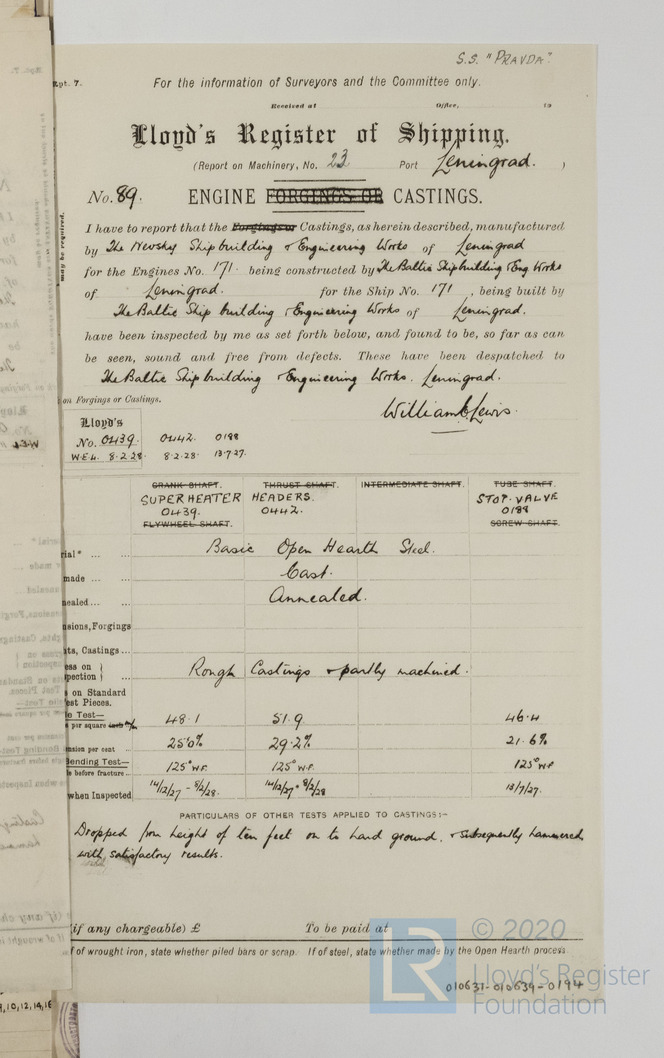 S.S. "PRAVDA".
Rpt. 7.
For the information of Surveyors and the Committee only.
Received at Office, 19
Lloyd's Register of Shipping.
(Report on Machinery, No. 23 Port Leningrad. )
No. 89. ENGINE FORGINGS OR CASTINGS.
may be required.
I have to report that the Forgings or Castings, as herein described, manufactured
by The Newsky Shipbuilding & Engineering Works of Leningrad
for the Engines No. 171. being constructed by The Baltic Shipbuilding & Eng Works
of Leningrad. for the Ship No. 171, being built by
The Baltic Ship building & Engineering Works of Leningrad.
have been inspected by me as set forth below, and found to be, so far as can
be seen, sound and free from defects. These have been despatched to
The Baltic Ship building & Engineering Works. Leningrad.
on Forgings or Castings.
William Lewis.
Lloyd's
No. 0439. 0442. 0188
W.E.L. 8.2.28. 8.2.28. 13.7.27.
CRANK SHAFT. THRUST SHAFT. INTERMEDIATE SHAFT. TUBE SHAFT.
SUPERHEATER HEADERS. STOP-VALVE
0439. 0442. 0188
FLYWHEEL SHAFT. SCREW SHAFT.
rial* ... ... Basic Open Hearth Steel.
made ... ... Cast.
nealed... ... Annealed.
nsions, Forgings
hts, Castings...
ess on
spection Rough Castings & partly machined.
s on Standard
Test Pieces.
le Test—
s per square 48.1 51.9 46.4
nsion per cent .. 25.0% 29.2% 21.6%
Bending Test—
le before fracture.. 125° W.F. 125° W.F. 125° W.F
when Inspected 14/12/27 - 8/2/28. 14/12/27 - 8/2/28 13/7/27.
PARTICULARS OF OTHER TESTS APPLIED TO CASTINGS:-
Dropped from height of ten feet on to hard ground, & subsequently hammered
with satisfactory results.
(if any chargeable) £ To be paid at
If of wrought iron, state whether piled bars or scrap. If of steel, state whether made by the Open Hearth process.
LR © 2020
Lloyd's Register
Foundation
010631-010639-0194
9,10,12,14,16